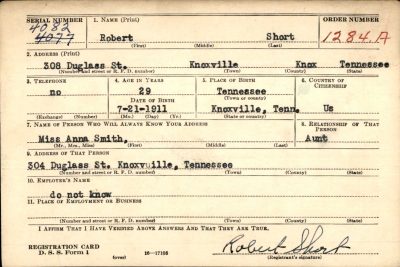 SERIAL NUMBER 1. NAME (Print) ORDER NUMBER
4082
4077 Robert Short 1284A
(First) (Middle) (Last)
2. ADDRESS (Print)
308 Duglass St. Knoxville Knox Tennessee
(Number and street or R. F. D. number) (Town) (County) (State)
3. TELEPHONE 4. AGE IN YEARS 5. PLACE OF BIRTH 6. COUNTRY OF CITIZENSHIP
no 29 Tennessee
DATE OF BIRTH (Town or county)
7-21-1911 Knoxville, Tenn. Us
(Exchange) (Number) (Mo.) (Day) (Yr.) (State or country)
7. NAME OF PERSON WHO WILL ALWAYS KNOW YOUR ADDRESS 8. RELATIONSHIP OF THAT PERSON
Miss Anna Smith, Aunt
(Mr., Mrs., Miss) (First) (Middle) (Last)
9. ADDRESS OF THAT PERSON
304 Duglass St. Knoxvuille, Tennessee
(Number and street or R. F. D. number) (Town) (County) (State)
10. EMPLOYER'S NAME
do not know
11. PLACE OF EMPLOYMENT OR BUSINESS
(Number and street or R. F. D. number) (Town) (County) (State)
I AFFIRM THAT I HAVE VERIFIED ABOVE ANSWERS AND THAT THEY ARE TRUE.
REGISTRATION CARD
D. S. S. Form 1 (over) 16-17105 Robert Short
(Registrant's signature)